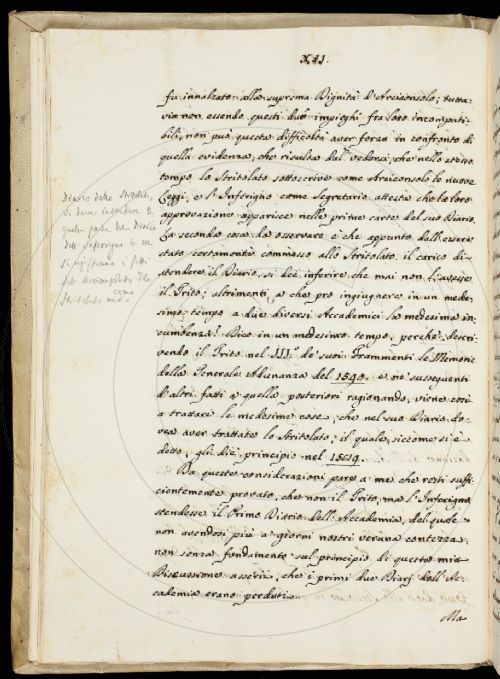 XII.
fu innalzato alla suprema Dignità d'Arciconsolo; tutta-
via non essendo questi due impieghi fra loro incompati-
bili, non può questa difficoltà aver forza in confronto di
quella evidenza, che risulta dal vedersi, che nello stesso
tempo lo Stritolato sottoscrive come Arciconsolo le nuove
Leggi, e l'Inferigno come Segretario attesta che la loro
approvazione apparisce nelle prime carte del suo Diario.
La seconda cosa da osservare è che appunto dall'essere
stato certamente commesso allo Stritolato il carico di
stendere il Diario, si dee inferire che mai non l'avesse
il Trito; altrimenti, a che pro ingiugnere in un mede-
simo tempo a due diversi Accademici la medesima in-
cumbenza? Dico in un medesimo tempo, perchè descri-
vendo il Trito nel III.° de' suoi Frammenti le Memorie
della Generale Adunanza del 1590. e ne' susseguenti
d'altri fatti a quella posteriori ragionando, viene così
a trattare le medesime cose, che nel suo Diario do-
vea aver trattate lo Stritolato; il quale, siccome si è
detto, gli diè principio nel 1589.
Da queste considerazioni pare a me che resti suffi-
cientemente provato, che non il Trito, ma l'Inferigno
stendesse il Primo Diario dell'Accademia, del quale
non avendosi più a' giorni nostri veruna contezza,
non senza fondamento sul principio di questa mia
Discussione asserii, che i primi due Diarj dell'Ac-
cademia erano perduti.
Ma
Diario dello Stritolato,
si deve intendere di
quella parte del Diario
dell'Inferigno in cui
si registrano i fatti
dell'Arciconsolato dello
Stritolato med.